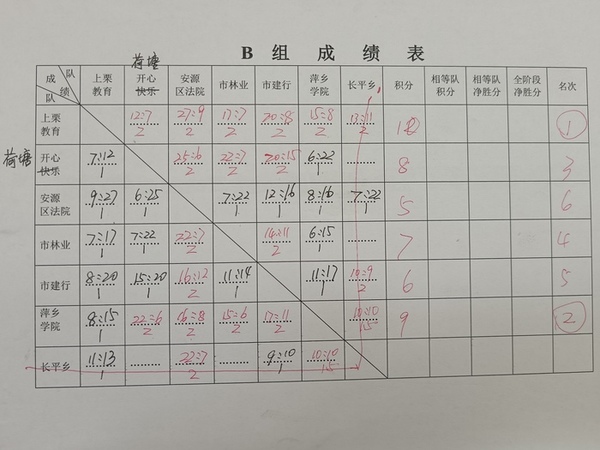 B 组 成 绩 表
荷塘
成绩 队 队 上栗教育 开心快乐 安源区法院 市林业 市建行 萍乡学院 长平乡 积分 相等队积分 相等队净胜分 全阶段净胜分 名次
上栗教育 12:7 2 27:9 2 17:7 2 20:8 2 15:8 2 13:11 2 ①
荷塘 开心快乐 7:12 1 25:6 2 22:7 2 20:15 2 6:22 1 8 3
安源区法院 9:27 1 6:25 1 7:22 1 12:16 1 8:16 1 7:22 1 5 6
市林业 7:17 1 7:22 1 22:7 2 14:11 2 6:15 1 7 4
市建行 8:20 1 15:20 1 16:12 2 11:14 1 11:17 1 10:9 2 6 5
萍乡学院 8:15 1 22:6 2 16:8 2 15:6 2 17:11 2 10:10 15 9 ②
长平乡 11:13 1 22:7 2 9:10 1 10:10 15